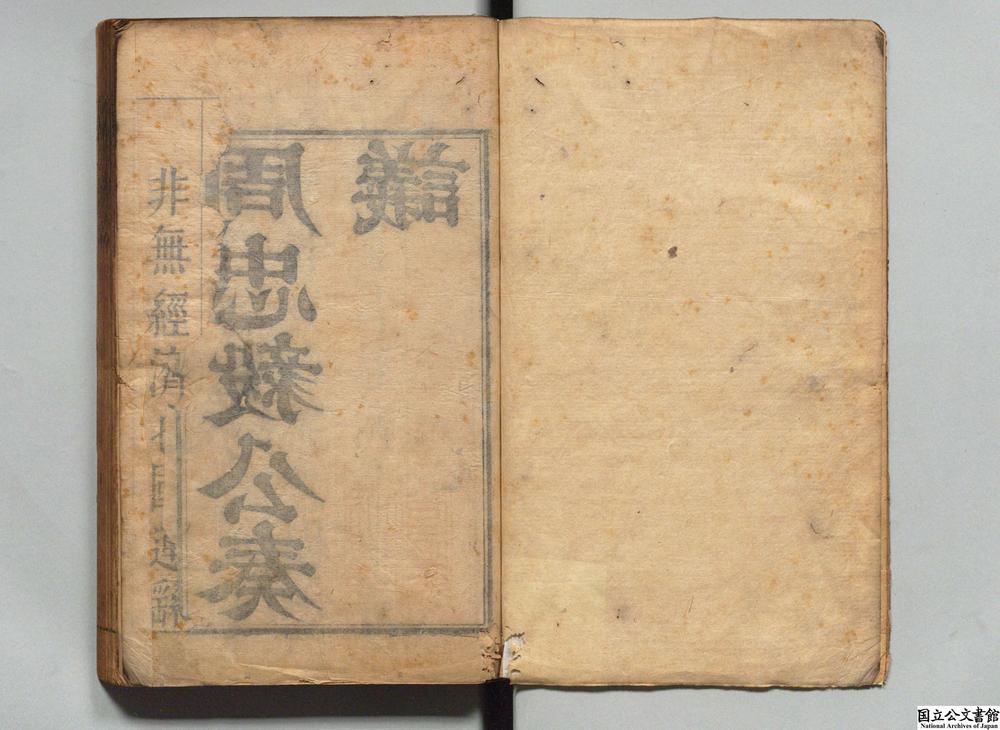 周忠毅公奏
議
非無經濟
国立公文書館
National Archives of Japan